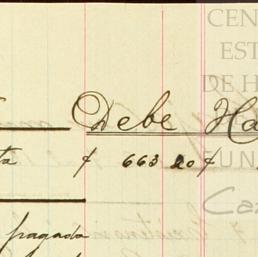 CEN
EST
DE H
Debe Ha
ta ₡ 663 20 ₡
FUN
Ca
pagada